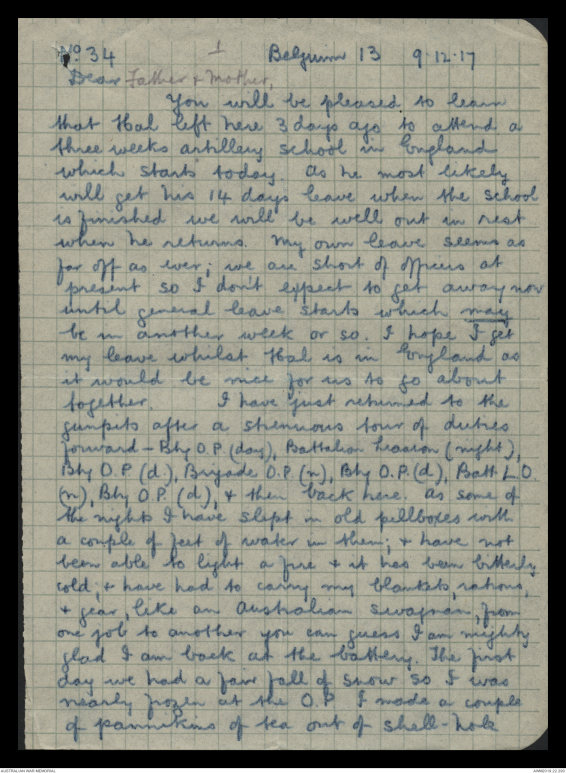 No. 34 1 Belguim 13 9.12.17
Dear Father & Mother,
You will be pleased to learn
that Hal left here 3 days ago to attend a
three weeks artillary school in England
which starts today. As he most likely
will get his 14 days leave when the school
is finished we will be well out in rest
when he returns. My own leave seems as
far off as ever; we are short of officers at
present so I don't expect to get away now
until general leave starts which may
be in another week or so. I hope I get
my leave whilst Hal is in England as
it would be nice for us to go about
together. I have just returned to the
gunpits after a strenuous tour of duties
forward - Bty O.P. (day), Battalion Liaison (night),
Bty O.P. (d.), Brigade O.P. (n), Bty O.P. (d), Batt L.O.
(n), Bty O.P. (d), & then back here. As some of
the nights I have slept in old pillboxes with
a couple of feet of water in them; & have not
been able to light a fire & it has been bitterly
cold, & have had to carry my blankets, rations,
& gear, like an Australian swagman, from
one job to another you can guess I am mighty
glad I am back at the battery. The first
day we had a fair fall of snow so I was
nearly frozen at the O.P. I made a couple
of pannikins of tea out of shell-hole
AUSTRALIAN WAR MEMORIAL